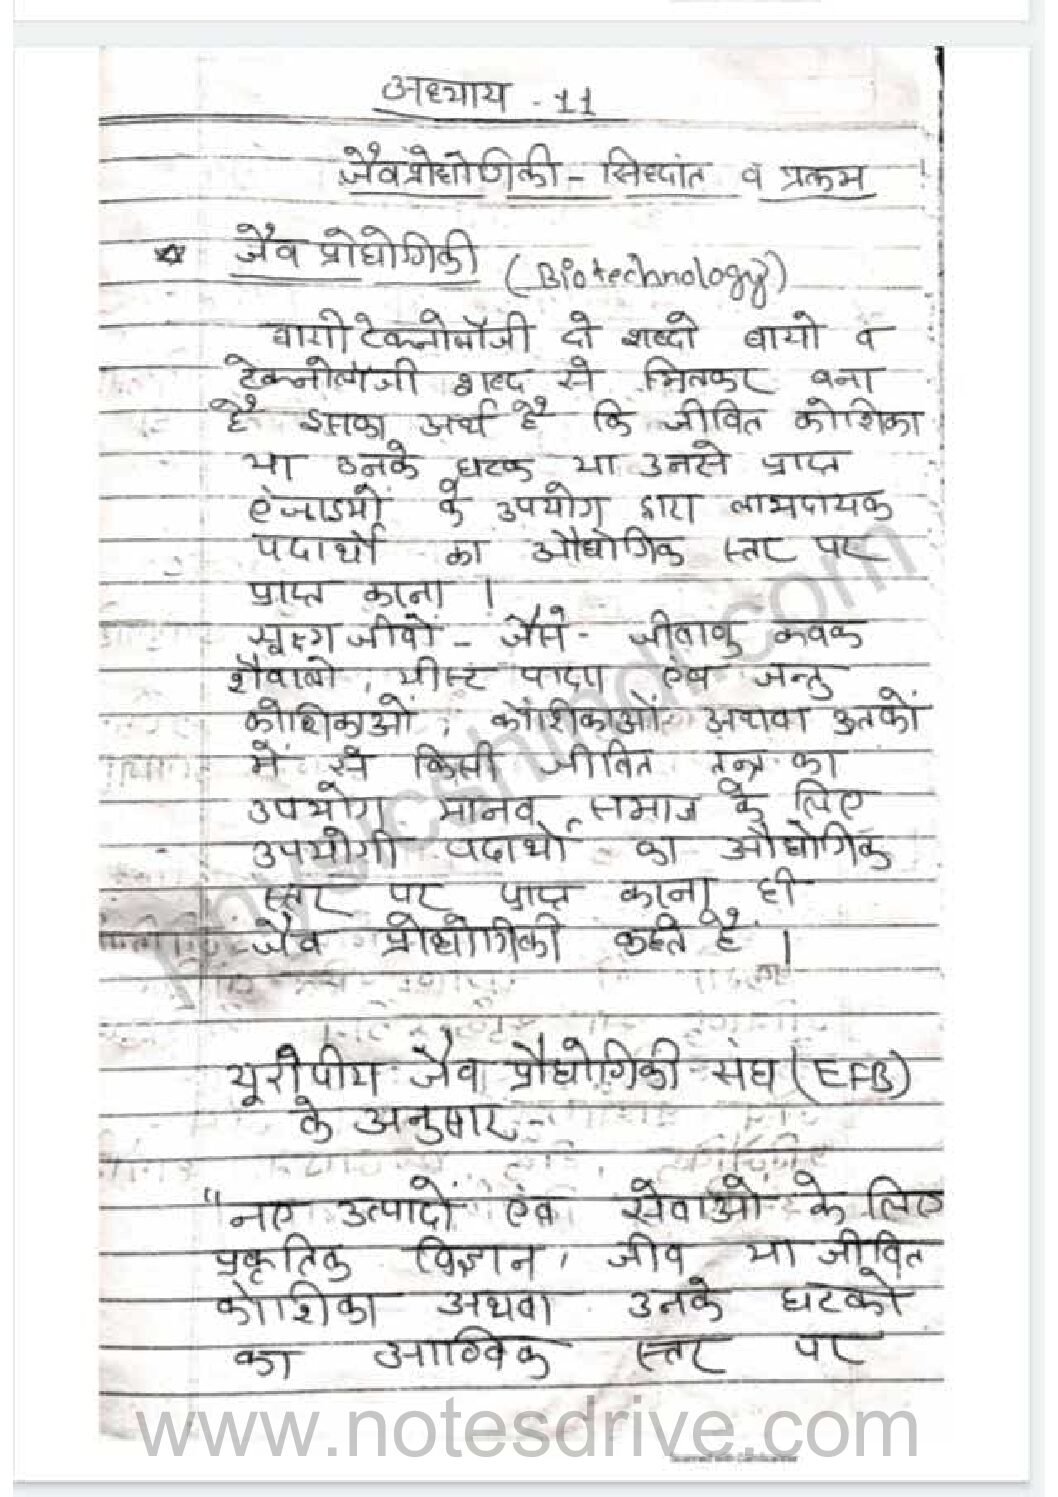 अध्याय - 11
जैवप्रोद्योगिकी - सिध्दांत व प्रक्रम
जैव प्रोद्योगिकी (Biotechnology)
बायोटेक्नोलॉजी दो शब्दो बायो व
टेक्नोलॉजी शब्द से मिलकर बना
है इसका अर्थ है कि जीवित कोशिका
या उनके घटक या उनसे प्राप्त
एंजाइमों के उपयोग द्वारा लाभदायक
पदार्थो का औद्योगिक स्तर पर
प्राप्त करना ।
सूक्ष्म जीवों - जैसे - जीवाणु कवक
शैवालो, यीस्ट पादप एवं जन्तु
कोशिकाओं, कोशिकाओं अथवा ऊतको
में से किसी जीवित तन्त्र का
उपयोग मानव समाज के लिए
उपयोगी पदार्थो का औद्योगिक
स्तर पर प्राप्त करना ही
जैव प्रोद्योगिकी कहते है ।
यूरोपीय जैव प्रौद्योगिकी संघ (EFB)
के अनुसार -
"नए उत्पादों एंव सेवाओं के लिए
प्रकृतिक विज्ञान, जीव या जीवित
कोशिका अथवा उनके घटको
का आण्विक स्तर पर
www.notesdrive.com